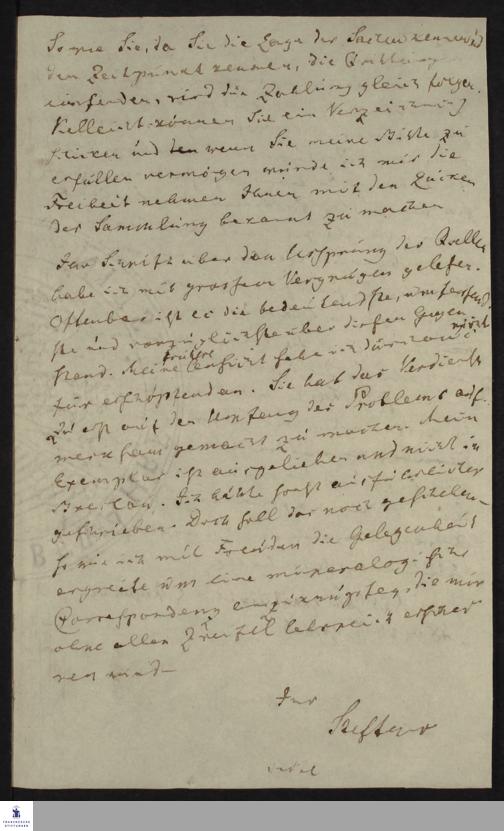 So wie Sie, da Sie die Lage der Sachen kennen, und
den Zeitpunkt kennen, die Quittung
einsenden, wird die Zahlung gleich folgen.
Vielleicht können Sie ein Verzeichniss
schicken und wenn Sie meine Bitte zu
erfüllen vermögen würde ich mir die
Freiheit nehmen Ihnen mit den Lücken
der Sammlung bekannt zu machen
Ihre Schrift über den Ursprung der Quellen
habe ich mit grossem Vergnügen gelesen.
Offenbar ist es die bedeutendste, umfassend
ste und vorzüglichste über diesen Gegen
stand. Meine frühere Ansicht habe ich durchaus nicht
für erschöpfend an. Sie hat das Verdienst
zu erst auf den Umfang des Problems auf
merksam gemacht zu machen. Mein
Exemplar ist ausgeliehen und nicht in
Breslau. Ich hätte sonst ausführlicher
geschrieben. Doch soll das noch geschehen
so wie ich mit Freuden die Gelegenheit
ergreife um eine mineralogische
Correspondenz anzuknüpfen, die mir
ohne allen Zweifel lehrreich
seyn wird—
Ihr
Steffens